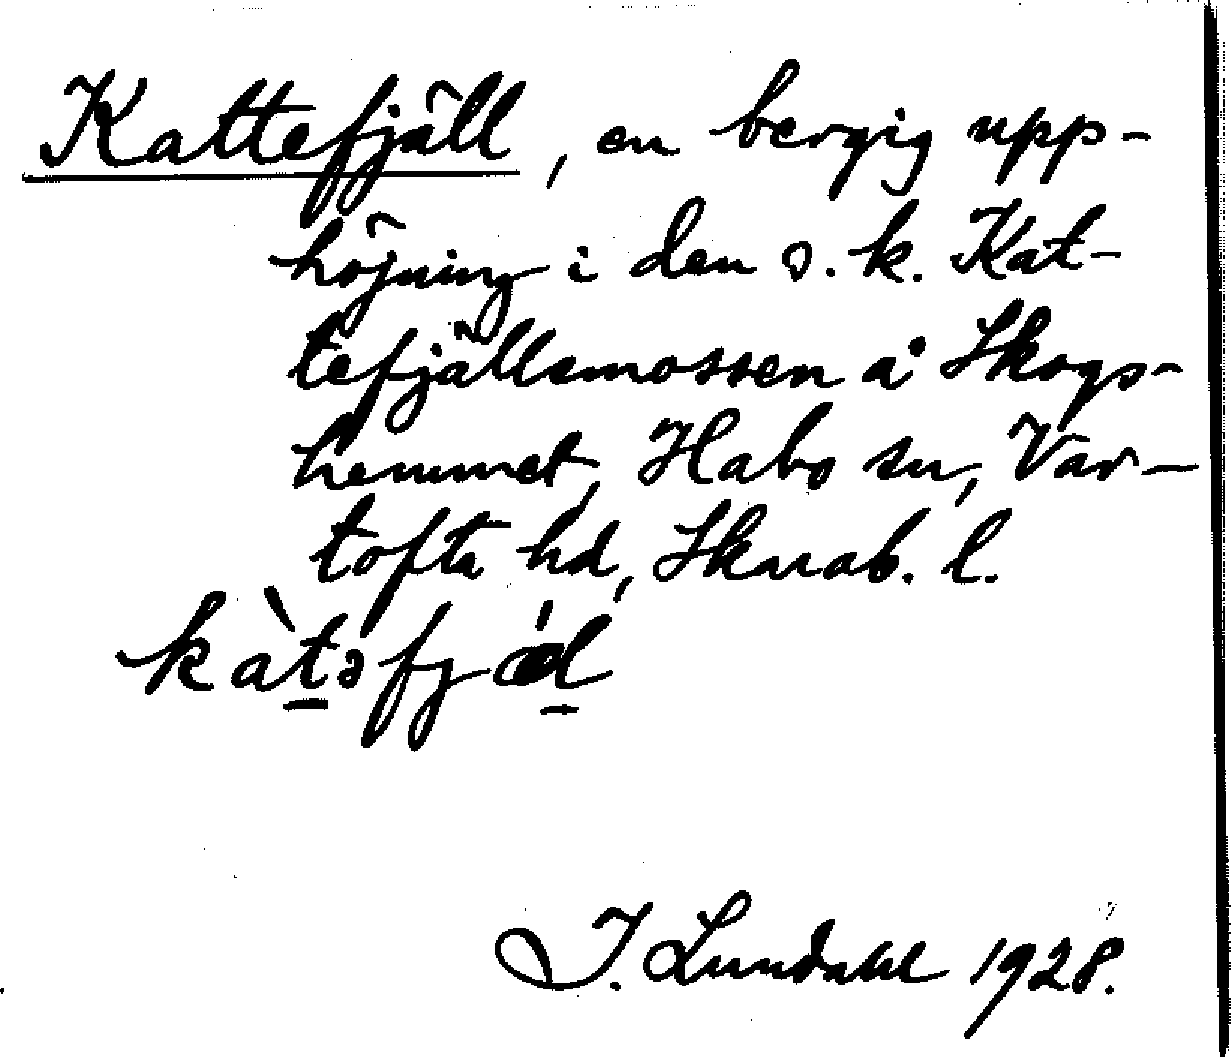 Kattefjäll, en bergig upp-
höjning i den s. k. Kat-
tefjällsmossen å Skogs-
hemmet, Habo sn, Var-
tofta hd, Skarab. l.
kàt̲əfjǽl̲
I. Lundahl 1928.